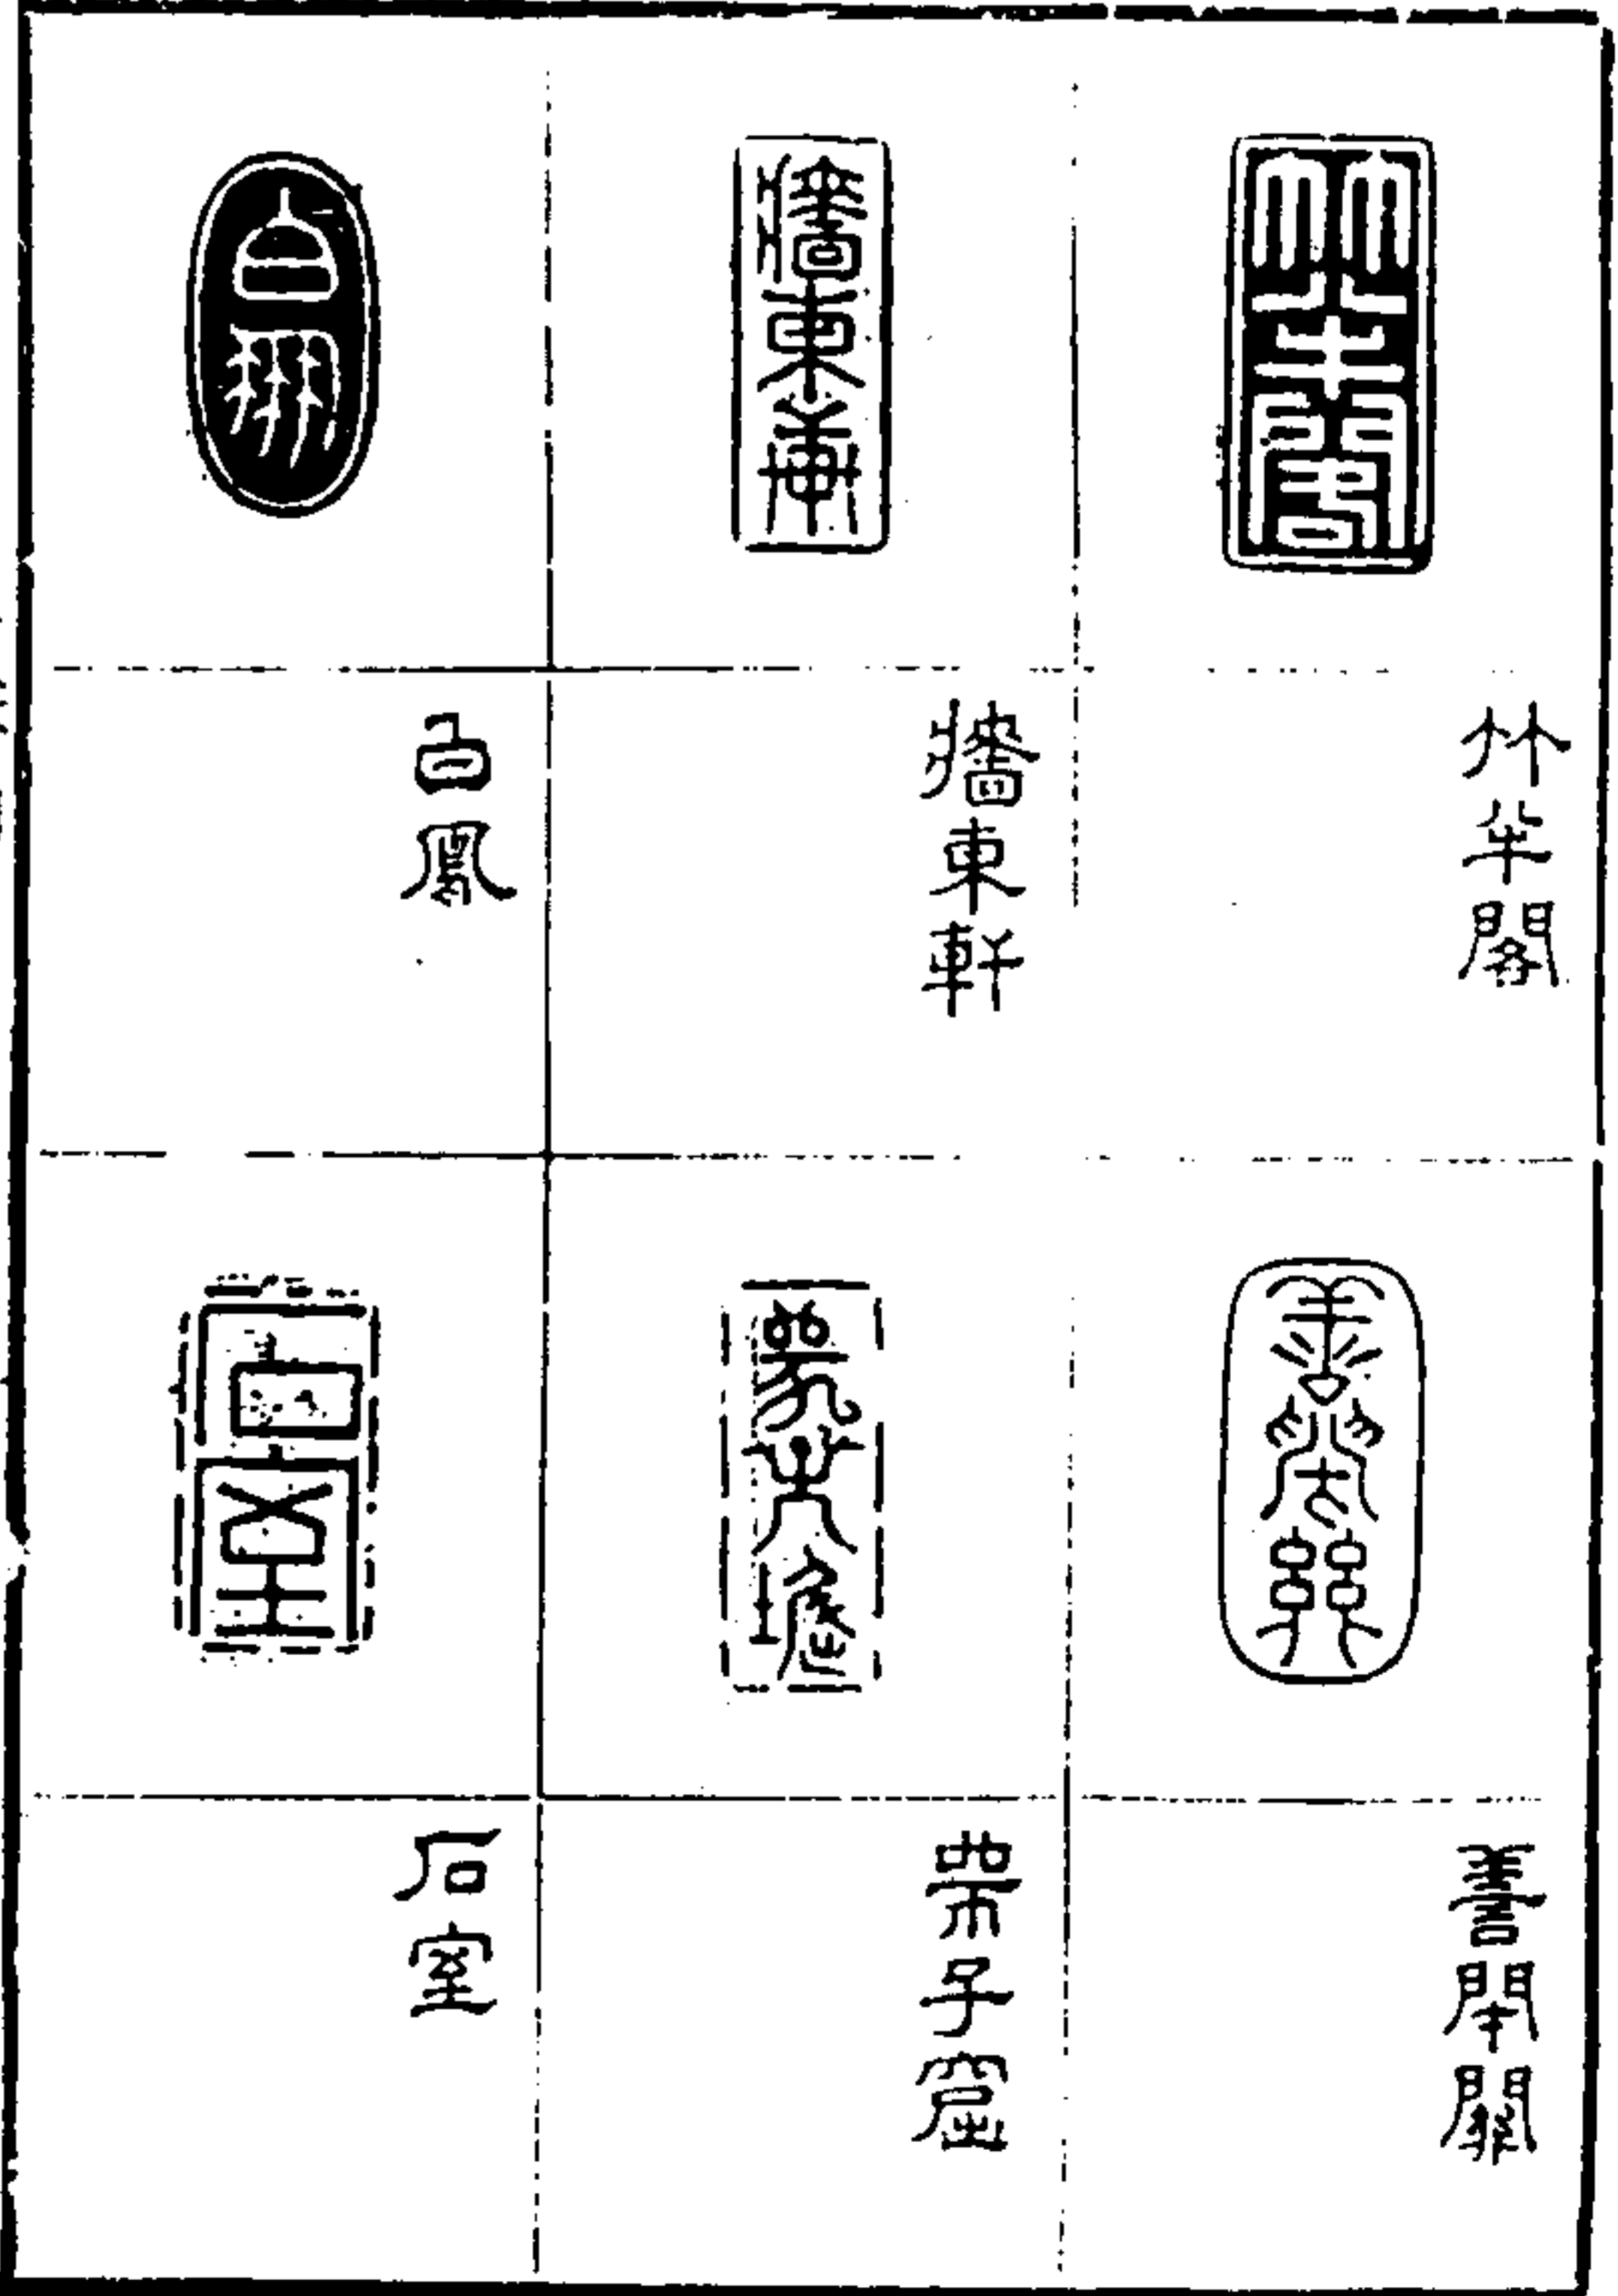 竹半閣
竹半閣
牆東軒
牆東軒
白鳳
白鳳
善閉關
善閉關
子窟
子窟
石室
石室